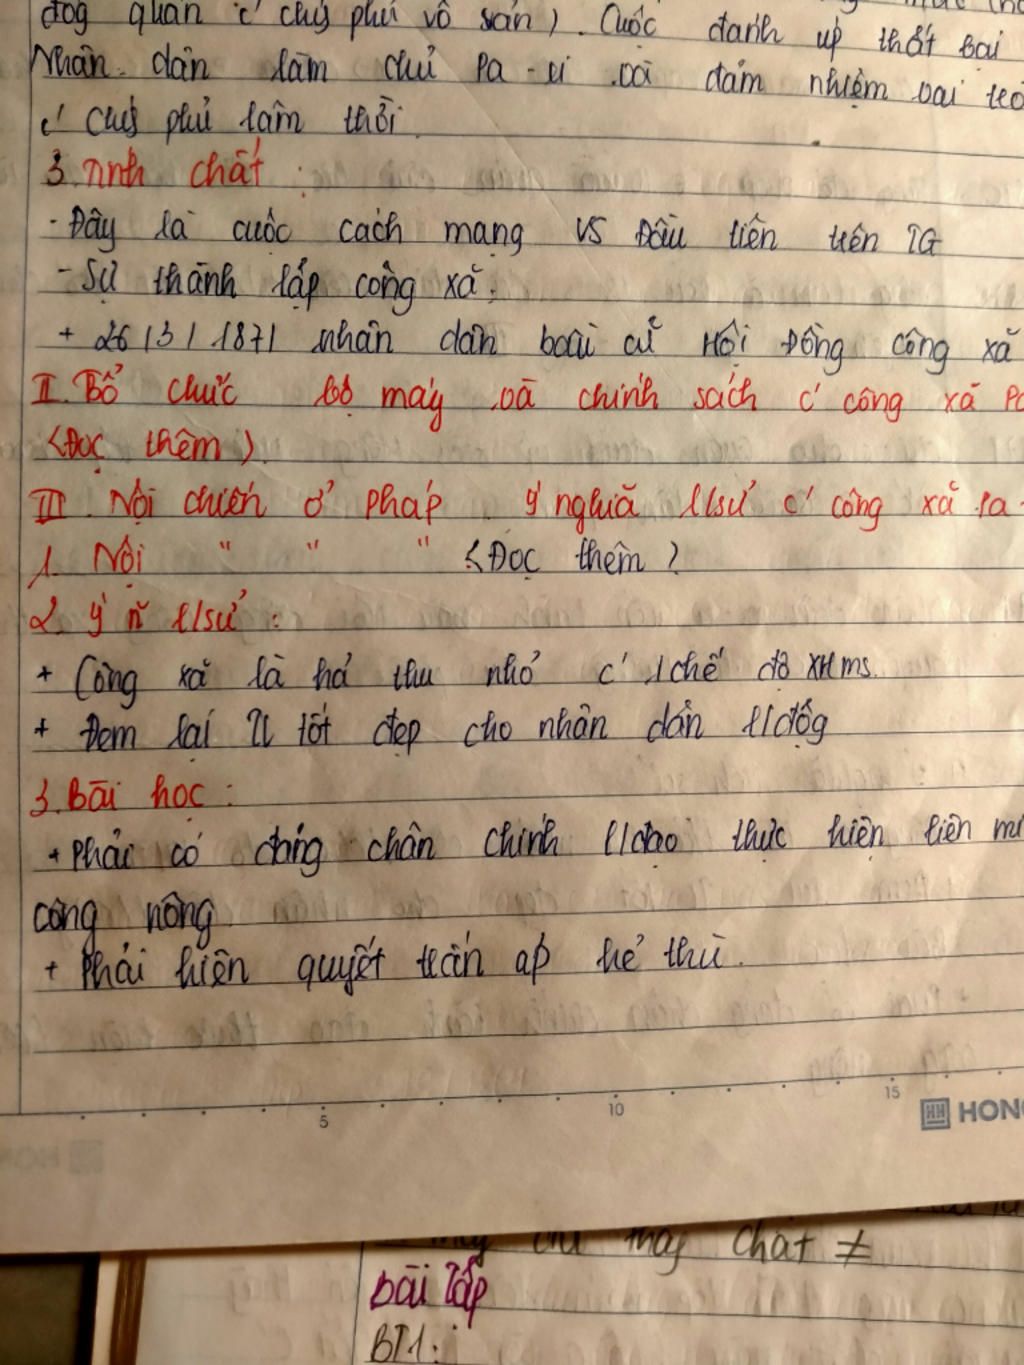 đog quân c' chíh phủ vô sản). Cuộc đanh úp thất bại
Nhân dân làm chủ Pa-ri và đảm nhiệm vai
c' chíh phủ lâm thời
3. Tính chất :
- Đây là cuộc cách mạng VS đầu tiên trên TG
- Sự thành lập công xã :
+ 26/3/1871 nhân dân bầu cử Hội Đồng công xã
II. Bổ chức bộ máy và chính sách c' công xã
<Đọc thêm>
III. Nội chiến ở pháp. Ý nghĩa l/sử c' công xã
1. Nội " " " <Đọc thêm>
2. Ý n̆ l/sử :
+ Công xã là h/ả thu nhỏ c' 1 chế độ XH ms.
+ Đem lại tốt đẹp cho nhân dân l/độg
3. Bài học :
+ Phải có đảng chân chính l/đạo thực hiện liên
công nông
+ Phải kiên quyết trấn áp kẻ thù.
5
10
15
HH HONG
chất ≠
Bài Tập
BT1: